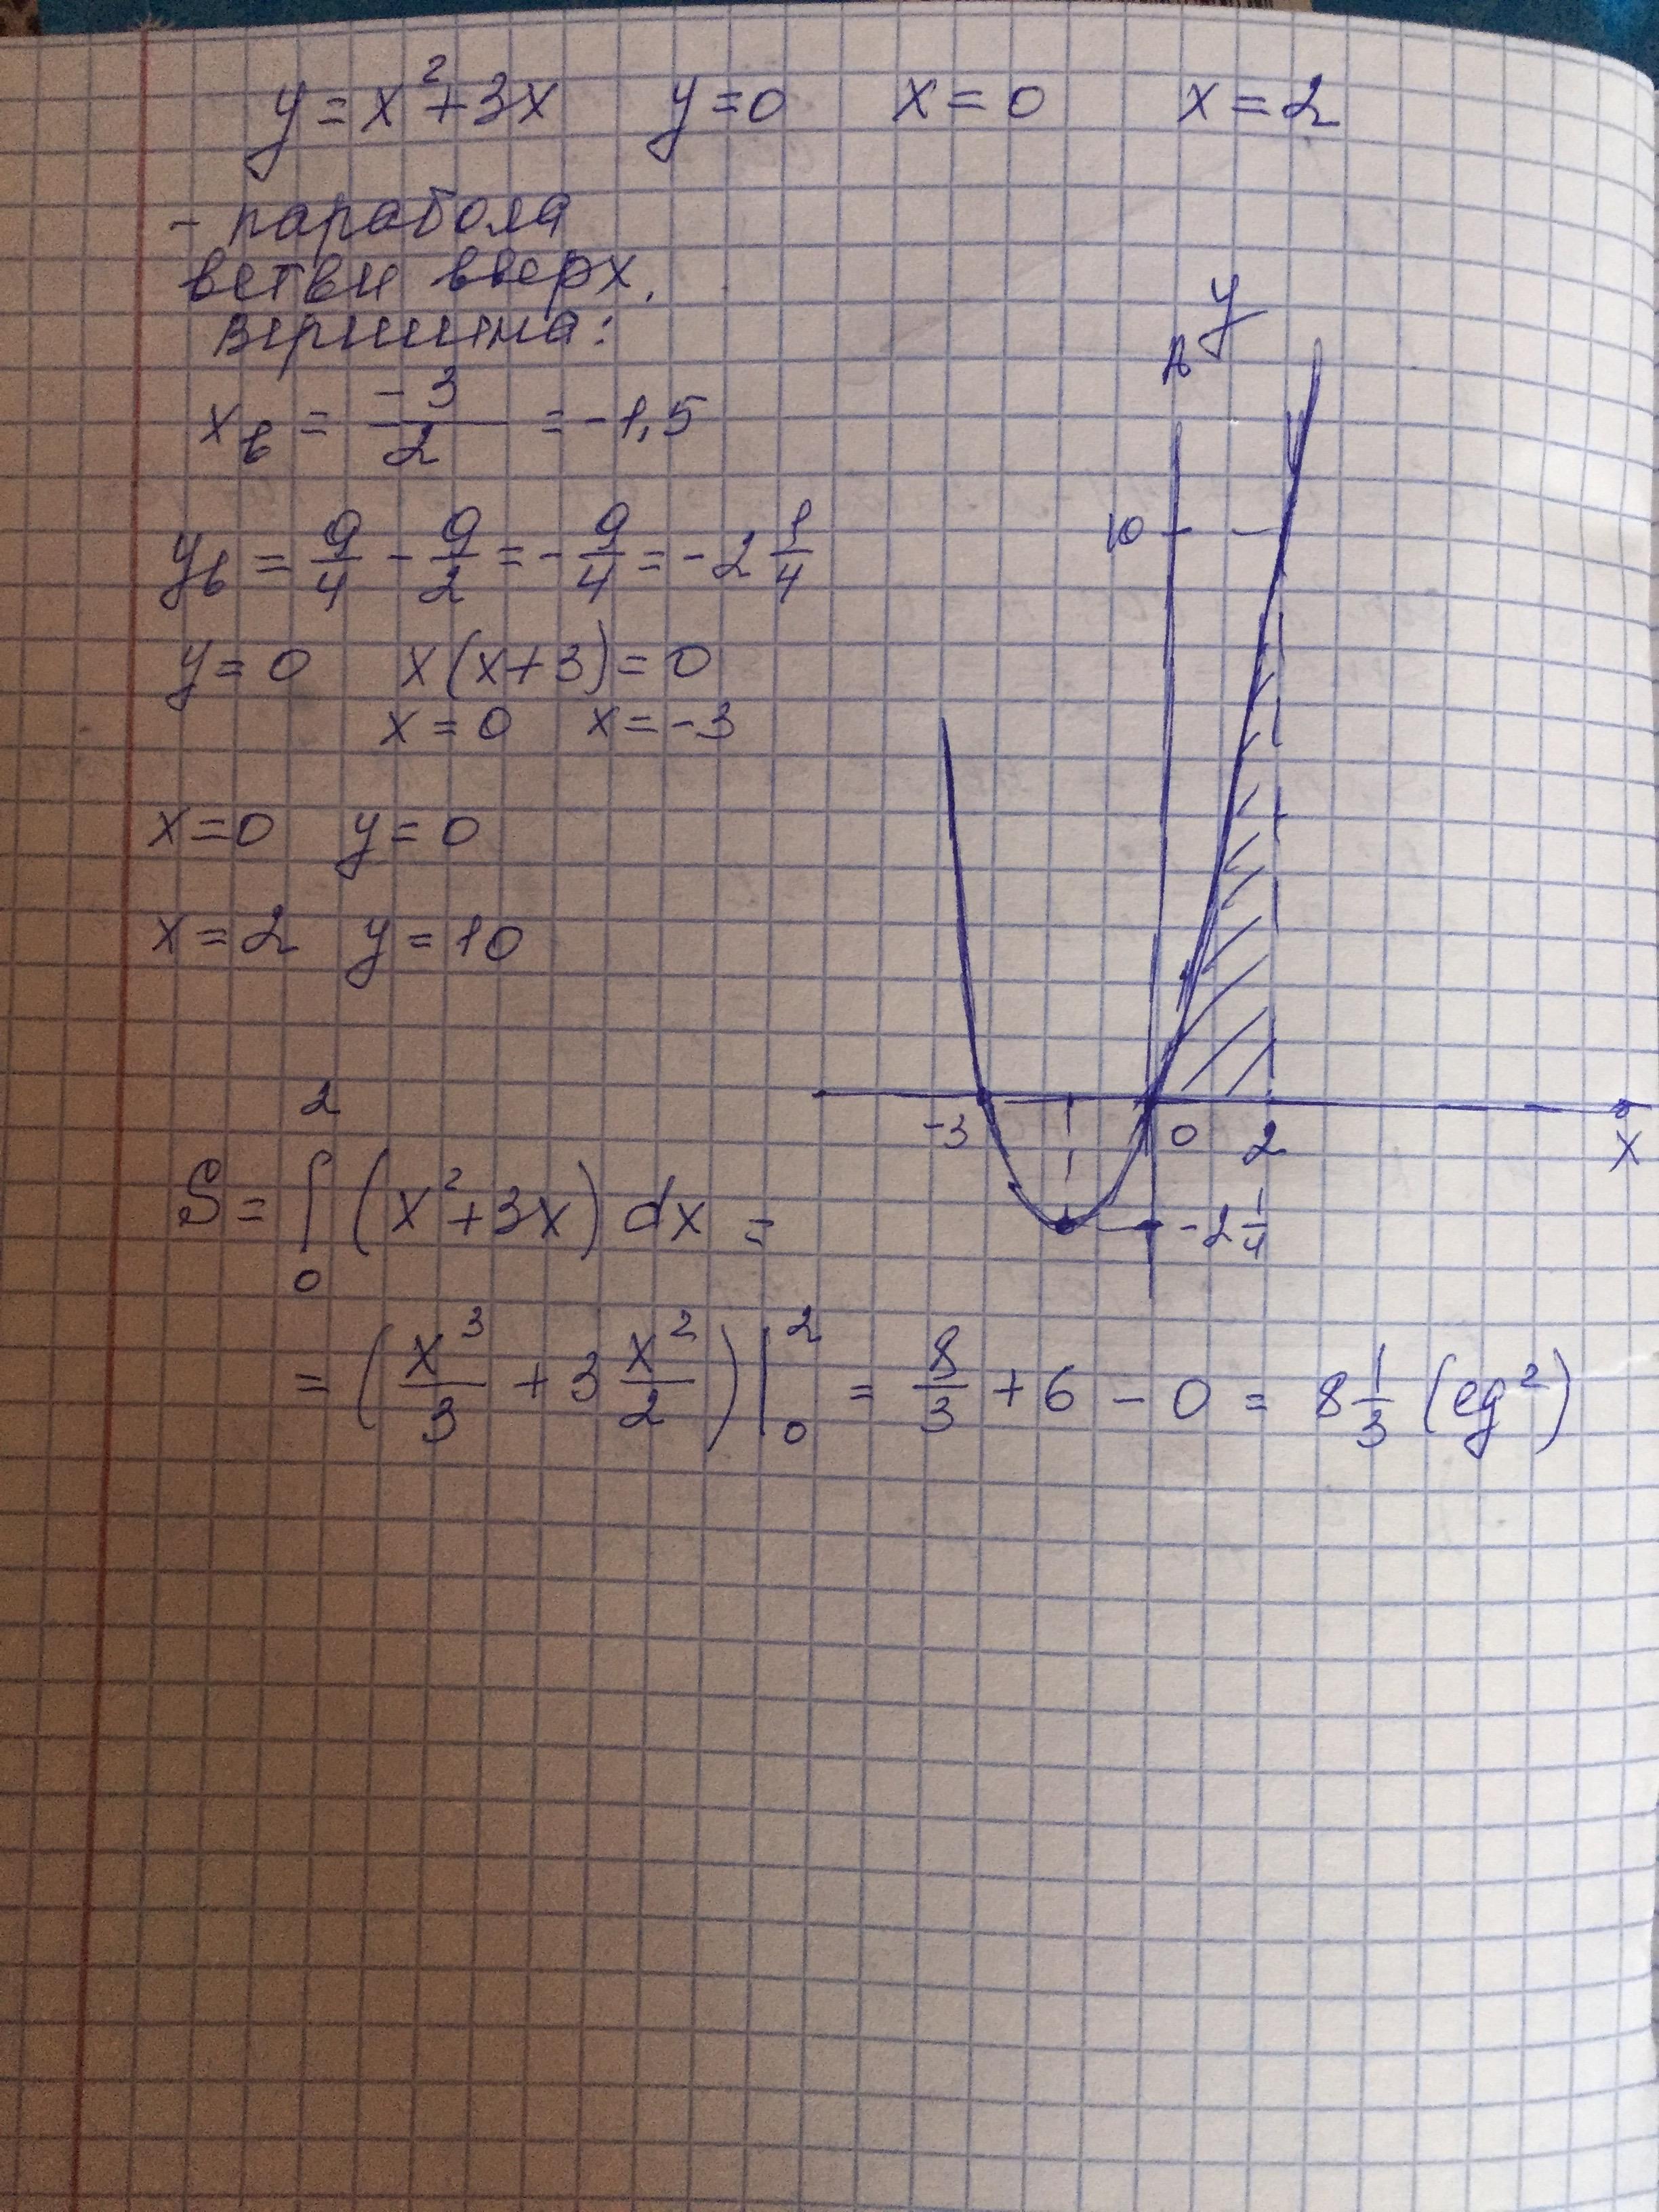 y = x² + 3x   y = 0   x = 0   x = 2
- парабола
ветви вверх.
вершина:
xв = -3/2 = -1,5
yв = 9/4 - 9/2 = -9/4 = -2 1/4
y = 0   x(x+3) = 0
x = 0   x = -3
x = 0   y = 0
x = 2   y = 10
S = ∫₀² (x² + 3x) dx =
= (x³/3 + 3 x²/2) |₀² = 8/3 + 6 - 0 = 8 1/3 (ед²)
y
10
-3   0   2   x
-2 1/4